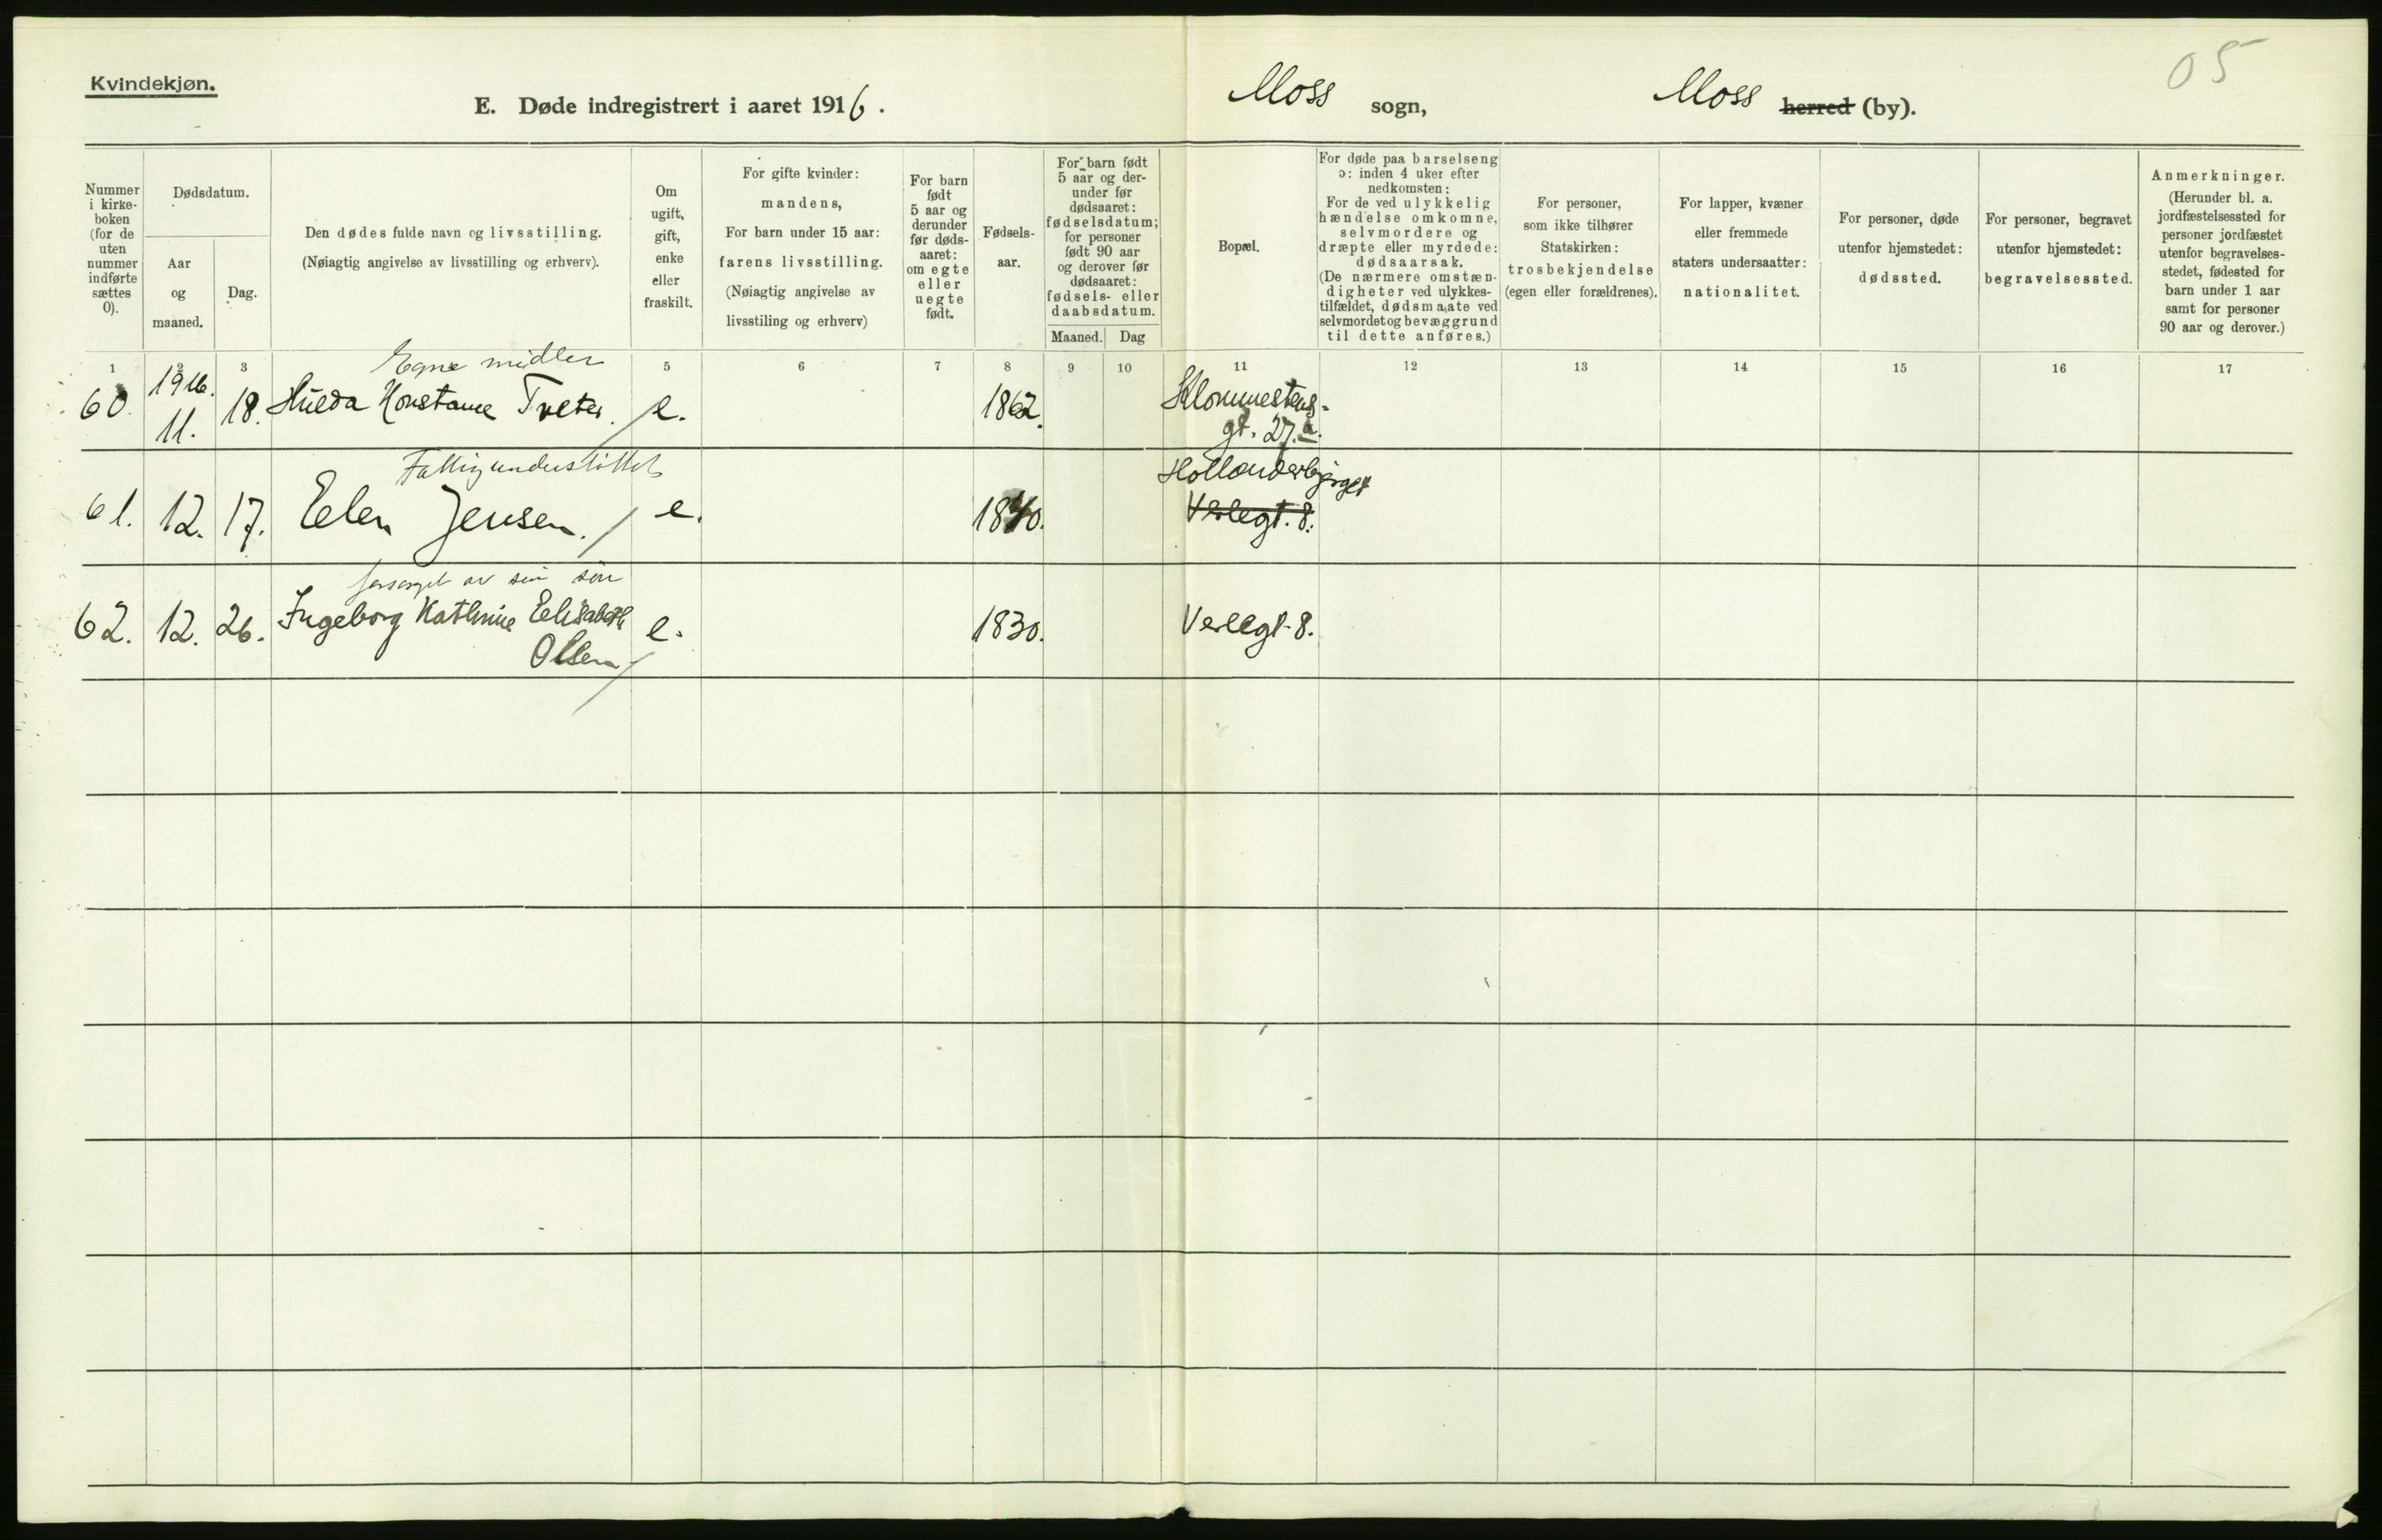 05
Kvindekjøn.
E. Døde indregistrert i aaret 1916. Moss sogn, Moss herred (by).
Nummer i kirke- boken (for de uten nummer indførte sættes 0).
Dødsdatum.
Aar og maaned.
Dag.
Den dødes fulde navn og livsstilling.
(Nøiagtig angivelse av livsstilling og erhverv).
Om ugift, gift, enke eller fraskilt.
For gifte kvinder:
mandens,
For barn under 15 aar:
farens livsstilling.
(Nøiagtig angivelse av
livsstiling og erhverv)
For barn født 5 aar og derunder før døds- aaret: om egte eller uegte født.
Fødsels- aar.
For barn født 5 aar og der- under før dødsaaret: fødselsdatum; for personer født 90 aar og derover før dødsaaret: fødsels- eller daabsdatum.
Maaned. Dag
Bopæl.
For døde paa barselseng
ɔ: inden 4 uker efter
nedkomsten:
For de ved ulykkelig
hændelse omkomne,
selvmordere og
dræpte eller myrdede:
dødsaarsak.
(De nærmere omstæn-
digheter ved ulykkes-
tilfældet, dødsmaate ved
selvmordet og bevæggrund
til dette anføres.)
For personer,
som ikke tilhører
Statskirken:
trosbekjendelse
(egen eller forældrenes).
For lapper, kvæner
eller fremmede
staters undersaatter:
nationalitet.
For personer, døde
utenfor hjemstedet:
dødssted.
For personer, begravet
utenfor hjemstedet:
begravelsessted.
Anmerkninger.
(Herunder bl. a.
jordfæstelsessted for
personer jordfæstet
utenfor begravelses-
stedet, fødested for
barn under 1 aar
samt for personer
90 aar og derover.)
1 2 3 5 6 7 8 9 10 11 12 13 14 15 16 17
Egne midler
60. 1916. 11. 18. Hulda Konstance Tveter. e. 1862. Klommestens-
gt. 27.a.
Fattigunderstøttet
61. 12. 17. Elen Jensen. e. 1840. Hollenderbjerget
Verlegt. 8.
forsørget av sin søn
62. 12. 26. Ingeborg Kathrine Elisabeth e. 1830. Verlegt. 8.
Olsen